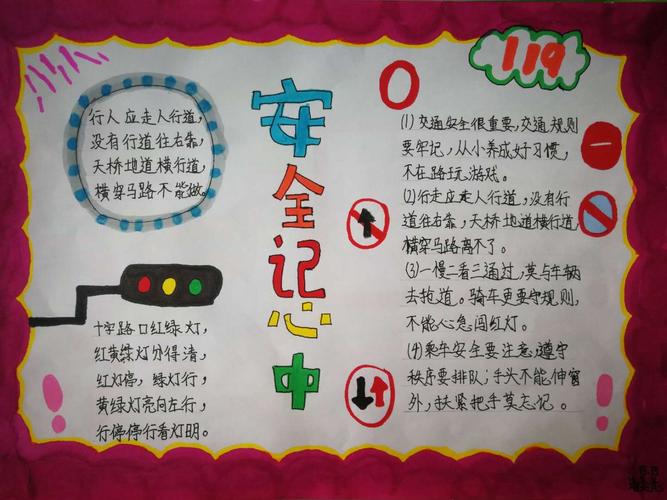 119
行人应走人行道,
没有行道往右靠,
天桥地道横行道,
横穿马路不能做。
安全记心中
十字路口红绿灯,
红黄绿灯分得清,
红灯停,绿灯行,
黄绿灯亮向左行,
行停停行看灯明。
(1)交通安全很重要,交通规则
要牢记,从小养成好习惯,
不在路玩游戏。
(2)行走应走人行道,没有行
道往右靠,天桥地道横行道,
横穿马路离不了。
(3)一慢二看三通过,莫与车辆
去抢道。骑车更要守规则,
不能心急闯红灯。
(4)乘车安全要注意,遵守
秩序要排队;手头不能伸窗
外,扶紧把手莫忘记。